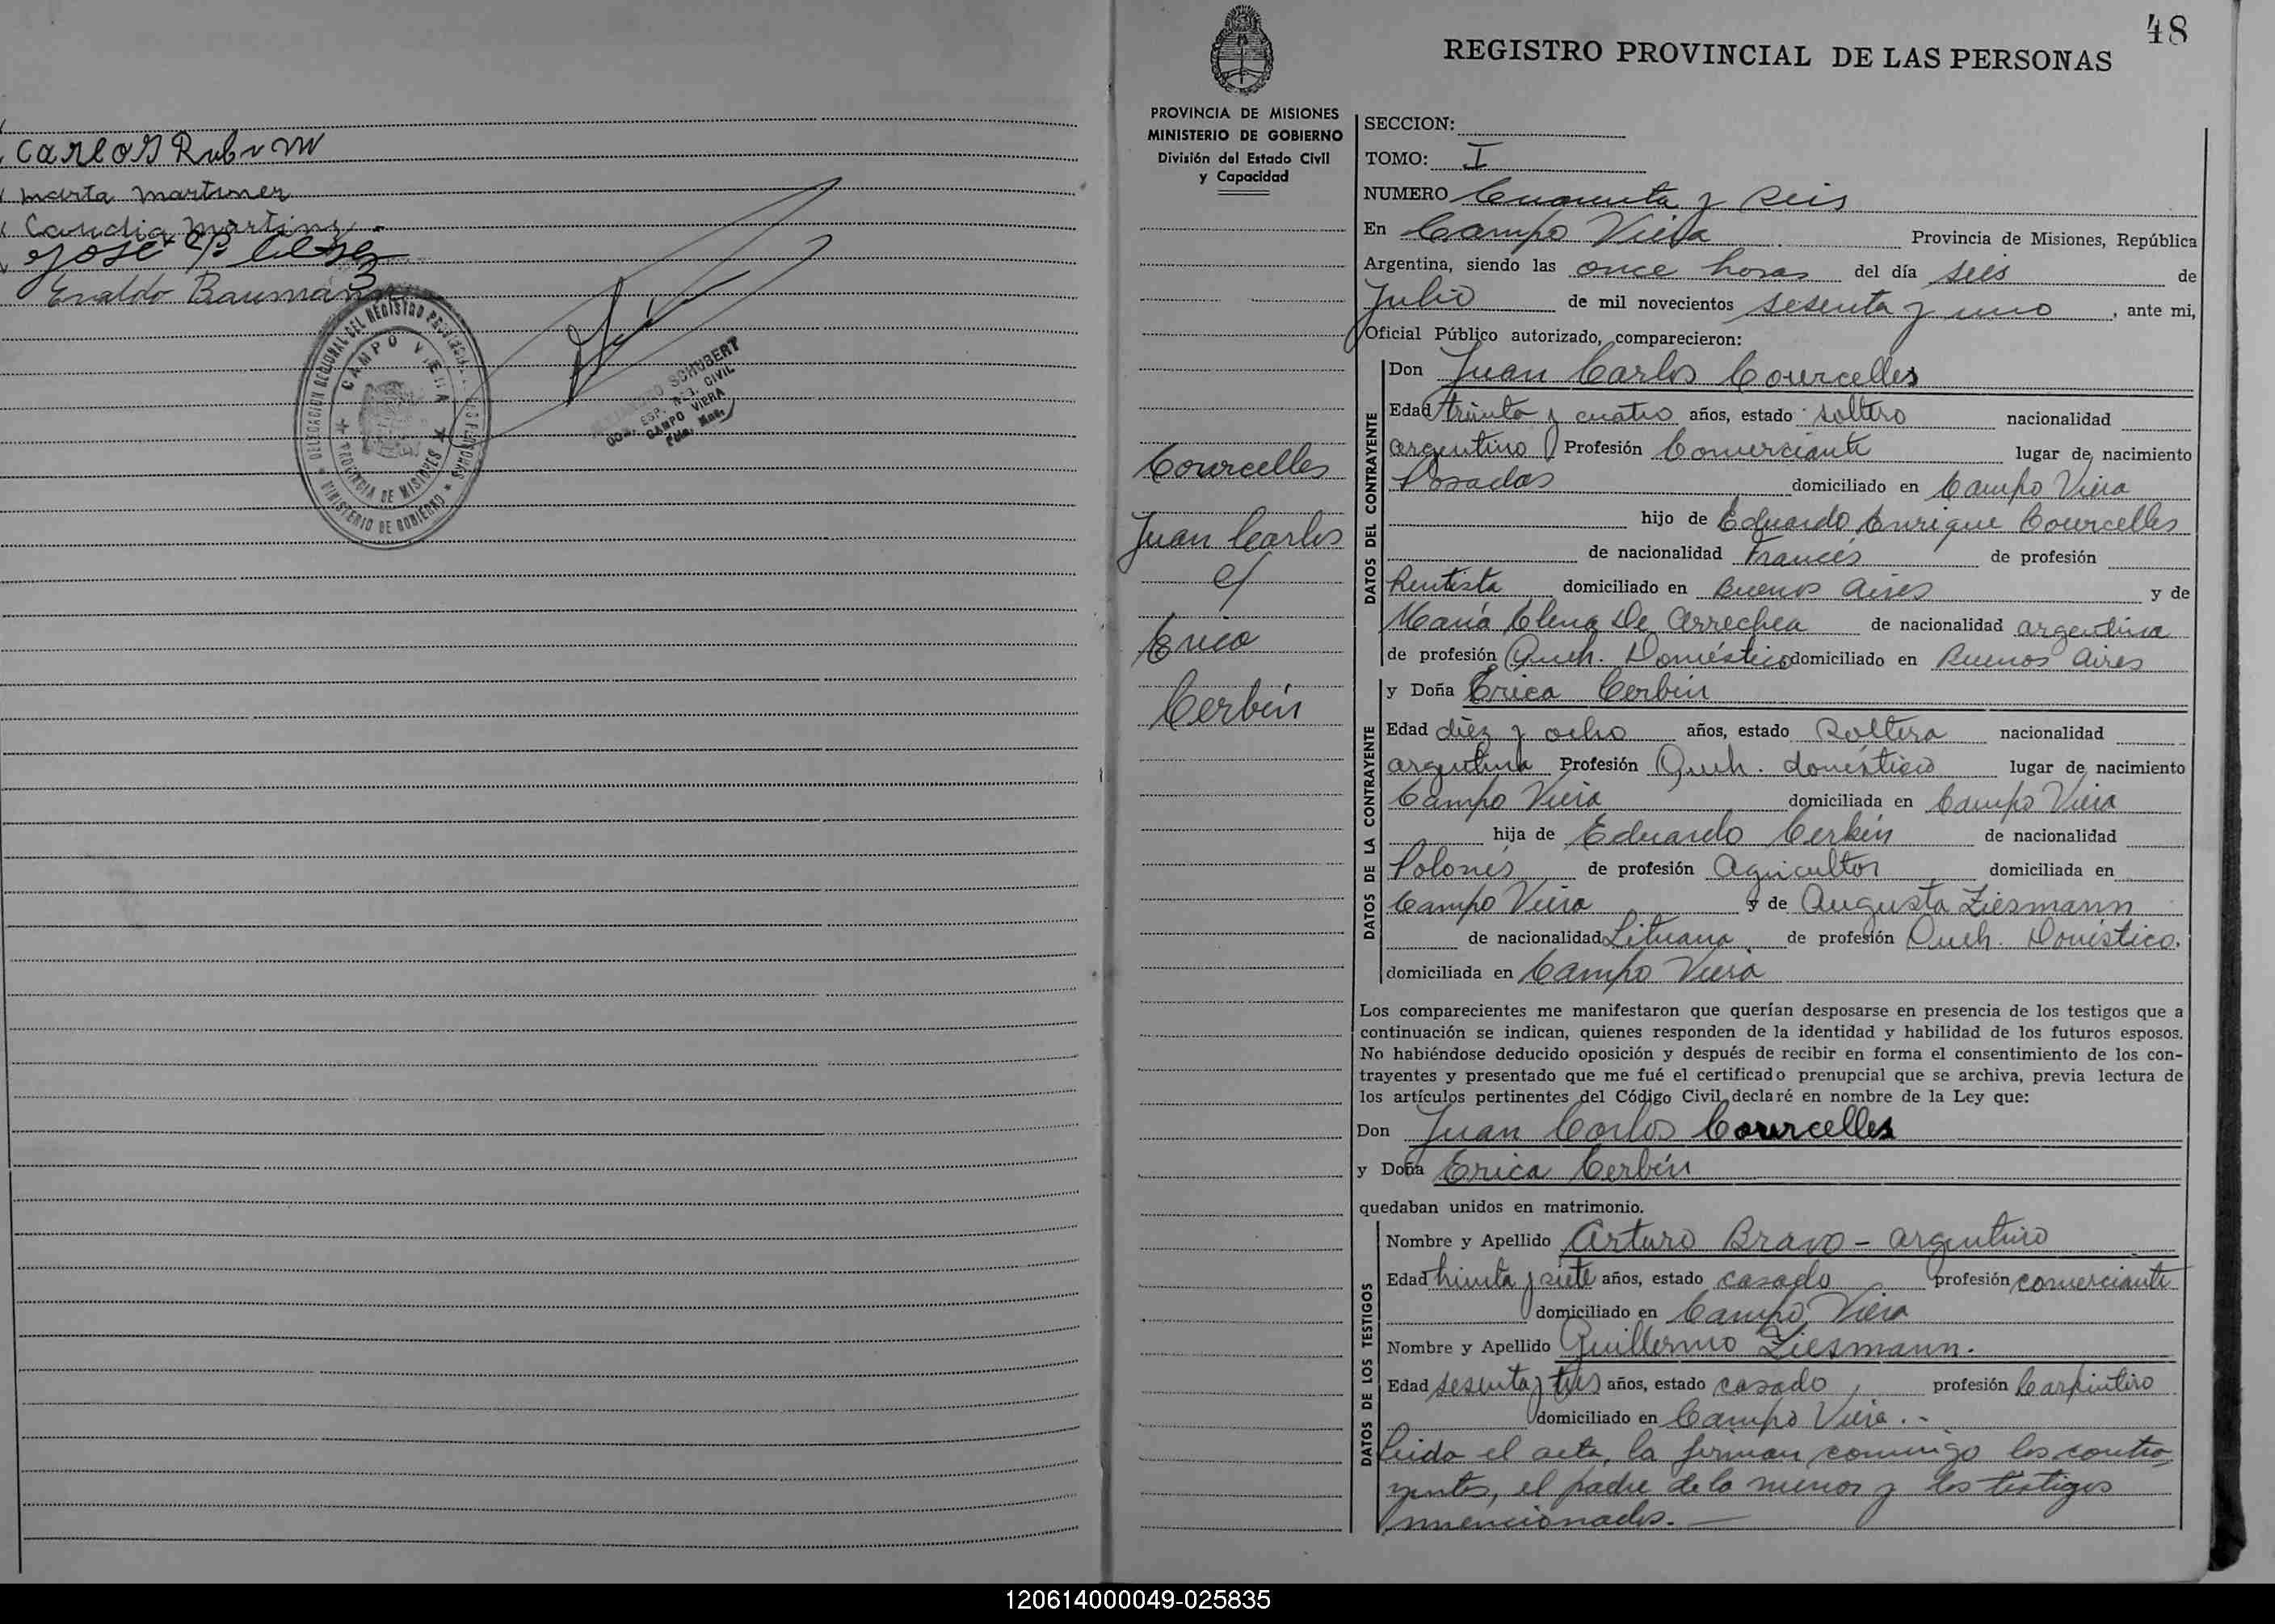 Carlos Rubin
Marta Martinez
José
Eraldo Baumann
DELEGACION REGIONAL DEL REGISTRO PROVINCIAL DE LAS PERSONAS
CAMPO VIERA
PROVINCIA DE MISIONES
MINISTERIO DE GOBIERNO
SCHUBERT
CIVIL
CAMPO VIERA
48
REGISTRO PROVINCIAL DE LAS PERSONAS
PROVINCIA DE MISIONES
MINISTERIO DE GOBIERNO
División del Estado Civil
y Capacidad
Courcelles
Juan Carlos
c/
Erica
Cerbin
SECCION:
TOMO: I
NUMERO Cuarenta y seis
En Campo Viera Provincia de Misiones, República
Argentina, siendo las once horas del día seis de
Julio de mil novecientos sesenta y uno, ante mi,
Oficial Público autorizado, comparecieron:
DATOS DEL CONTRAYENTE
Don Juan Carlos Courcelles
Edad treinta y cuatro años, estado soltero nacionalidad
argentino Profesión Comerciante lugar de nacimiento
Posadas domiciliado en Campo Viera
hijo de Eduardo Enrique Courcelles
de nacionalidad Francés de profesión
Rentista domiciliado en Buenos Aires y de
María Elena De Arrechea de nacionalidad argentina
de profesión Queh. Doméstico domiciliado en Buenos Aires
DATOS DE LA CONTRAYENTE
y Doña Erica Cerbin
Edad diéz y ocho años, estado Soltera nacionalidad
argentina Profesión Queh. doméstico lugar de nacimiento
Campo Viera domiciliada en Campo Viera
hija de Eduardo Cerbin de nacionalidad
Polonés de profesión Agricultor domiciliada en
Campo Viera y de Augusta Ziesmann
de nacionalidad Lituana de profesión Queh. Doméstico.
domiciliada en Campo Viera
Los comparecientes me manifestaron que querían desposarse en presencia de los testigos que a
continuación se indican, quienes responden de la identidad y habilidad de los futuros esposos.
No habiéndose deducido oposición y después de recibir en forma el consentimiento de los con-
trayentes y presentado que me fué el certificado prenupcial que se archiva, previa lectura de
los artículos pertinentes del Código Civil declaré en nombre de la Ley que:
Don Juan Carlos Courcelles
y Doña Erica Cerbin
quedaban unidos en matrimonio.
DATOS DE LOS TESTIGOS
Nombre y Apellido Arturo Bravo - argentino
Edad treinta y siete años, estado casado profesión comerciante
domiciliado en Campo Viera
Nombre y Apellido Guillermo Ziesmann.
Edad sesenta y tres años, estado casado, profesión Carpintero
domiciliado en Campo Viera.-
Leida el acta, la firman conmigo los contra
yentes, el padre de la menor y los testigos
mencionados.-
120614000049-025835